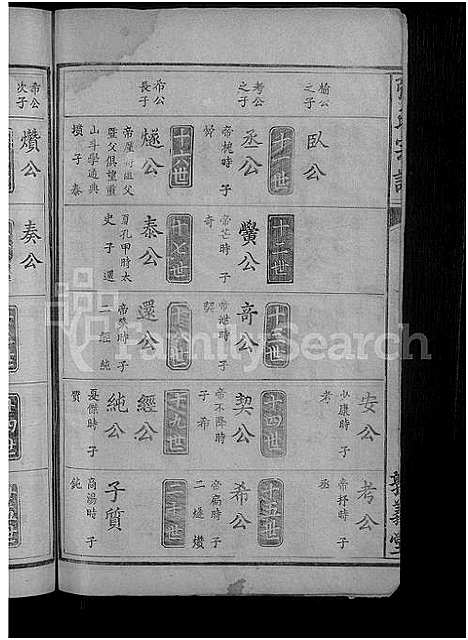 臥公
安公
少康時 子
考
考公
帝抒時 子
丞
之子
十一世
十二世
十三世
十四世
十五世
考公
之子
丞公
帝槐時 子
鸒公
帝芒時 子
奇
奇公
帝泄時 子
契
契公
帝不降時
子 希
希公
帝扃時 子
二 燧 爕
十六世
十七世
十八世
十九世
二十世
希公
長子
燧公
帝廑時
暨父俱望重
山斗學通典
墳 子 泰
泰公
夏孔甲時太
史 子 還
還公
子
二 經 純
經公
純公
夏傑時 子
質
子質
商湯時 子
鈍
希公
次子
奏公
FamilySearch